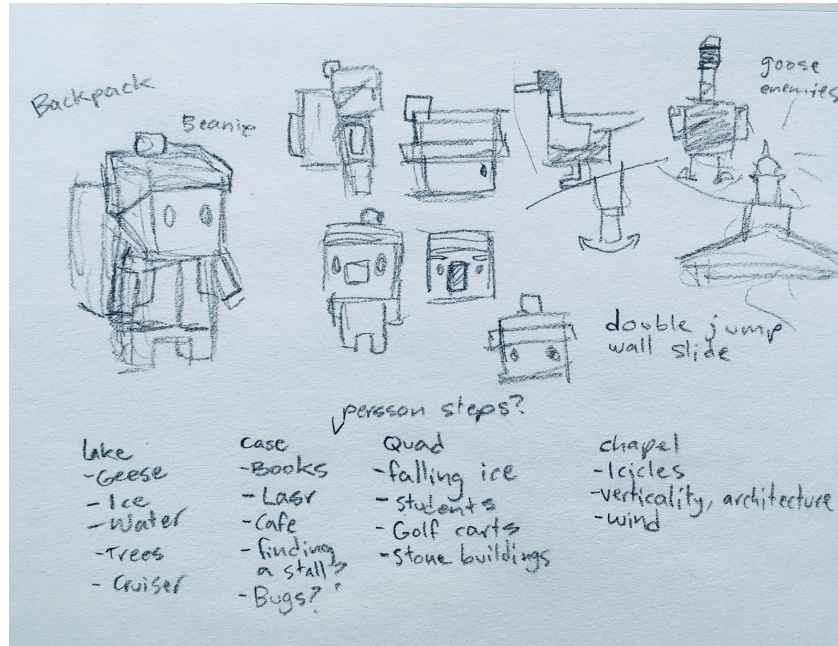 Backpack
Beanie
goose
enemies
double jump
wall slide
persson steps?
lake
-Geese
-Ice
-Water
-Trees
-Cruiser
Case
-Books
-Lasr
-Cafe
-finding
a stall?
-Bugs?
Quad
-falling ice
-students
-Golf carts
-Stone buildings
chapel
-Icicles
-verticality, architecture
-wind